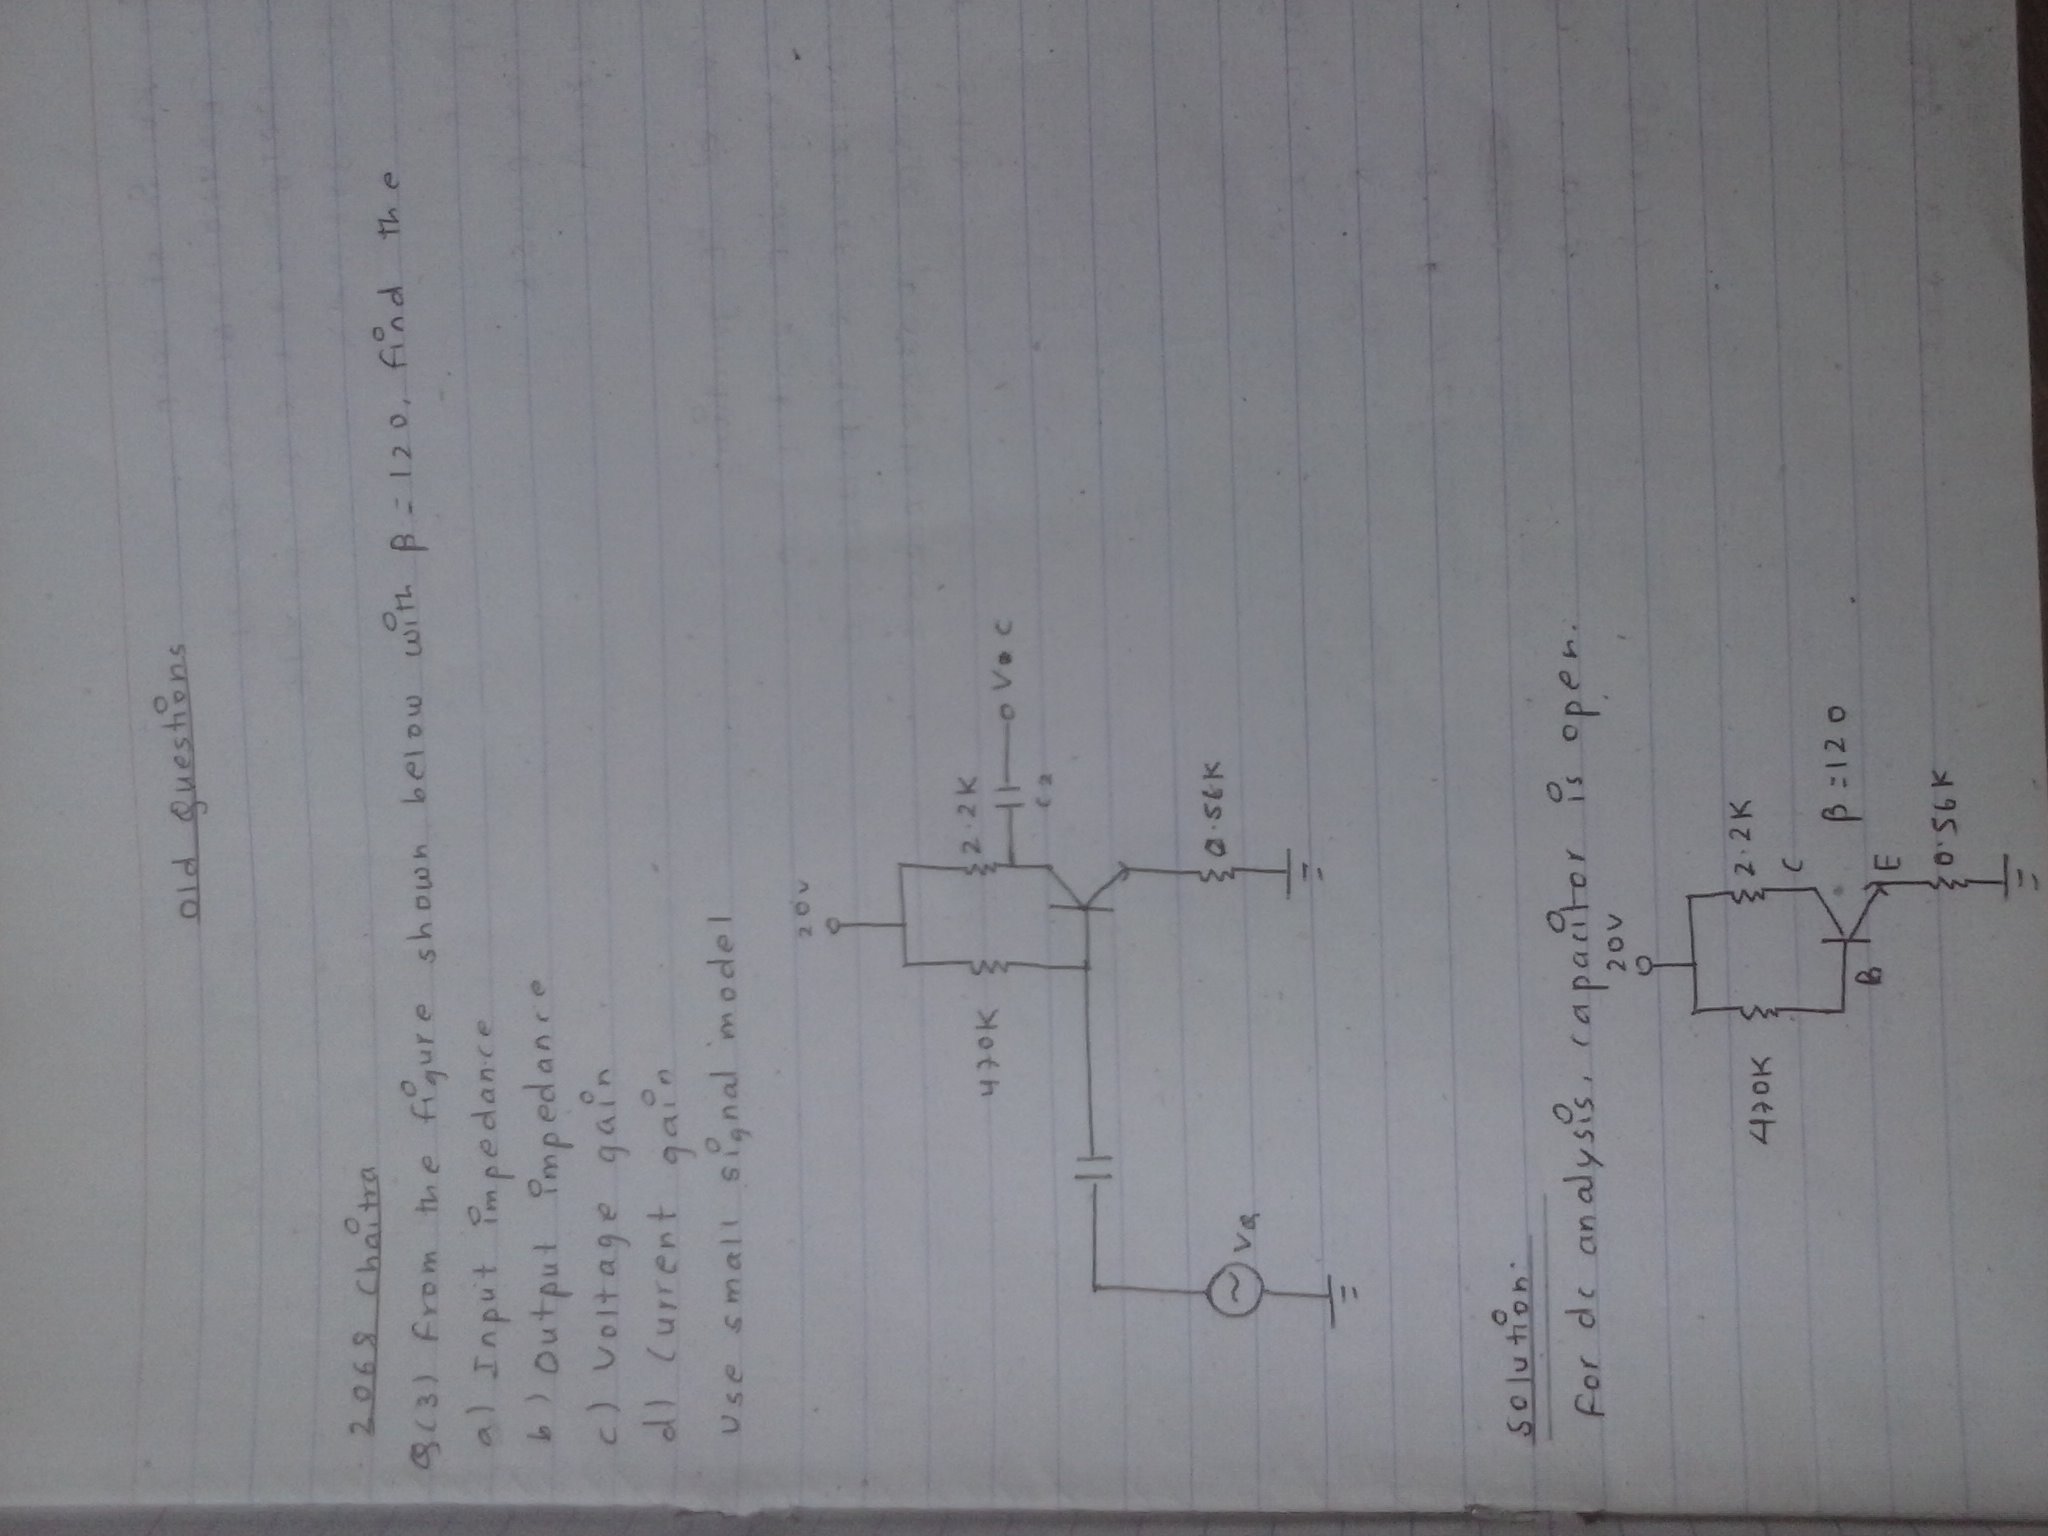 Old Questions
2068 Chaitra
Q.(3) From the figure shown below with β = 120, find the
a) Input impedance
b) Output impedance
c) Voltage gain
d) Current gain
Use small signal model
20V
470K
2.2K
C2
0.56K
Solution:
For dc analysis, capacitor is open.
20V
470K
2.2K
C
B
β = 120
E
0.56K